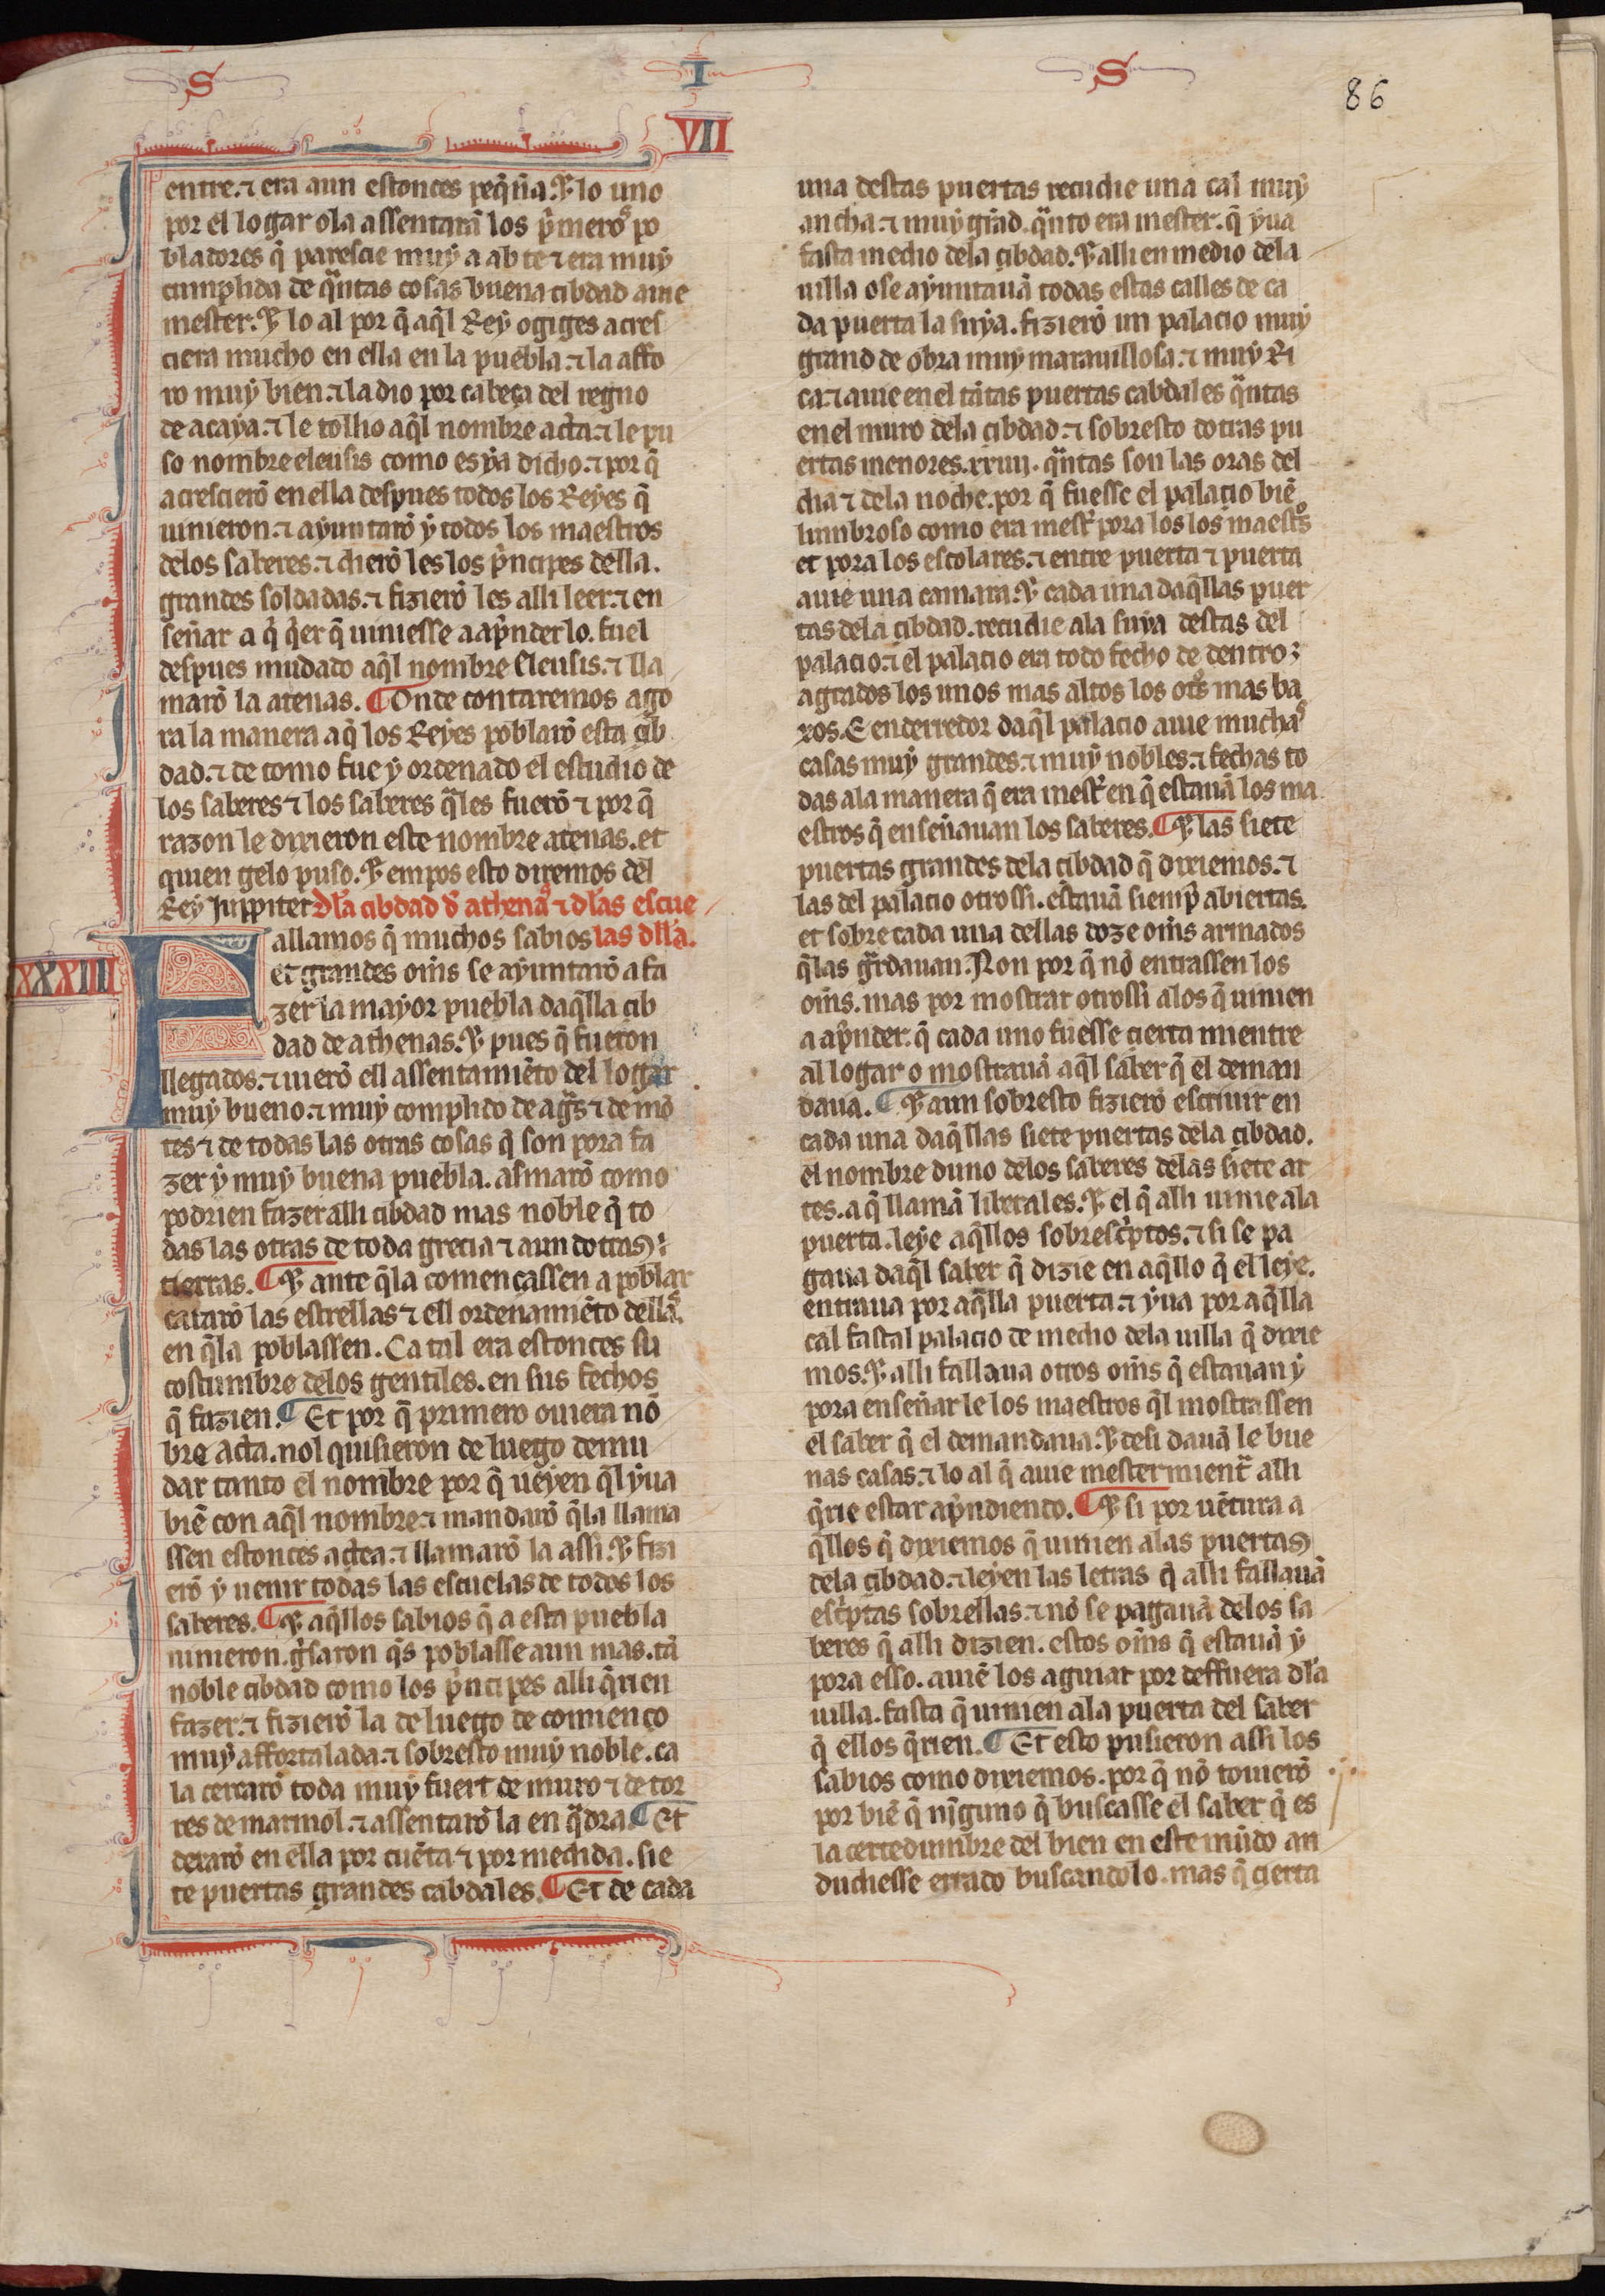 S I S
86
VII
entre. ⁊ era aun estonces peq̃ña. ⁊ lo uno
por el logar o la assentarã los p̃meros po
bladores q̃ parescie muy a abte ⁊ era muy
cumplida de q̃ntas cosas buena cibdad auie
mester. ⁊ lo al por q̃ aq̃l Rey ogiges acres
ciera mucho en ella en la puebla. ⁊ la affo
ro muy bien. ⁊ la dio por cabeça del regno
de acaya. ⁊ le tolho aq̃l nombre acta. ⁊ le pu
so nombre eleusis como es ya dicho. ⁊ por q̃
acrescierõ en ella despues todos los Reyes q̃
uinieron. ⁊ ayuntarõ y todos los maestros
delos saberes. ⁊ dierõ les los p̃ncipes della.
grandes soldadas. ⁊ fizierõ les alli leer. ⁊ en
señar a q̃ q̃er q̃ uiniesse a ap̃nderlo. fuel
despues mudado aq̃l nombre Eleusis. ⁊ lla
marõ la atenas. ¶ Onde contaremos ago
ra la manera a q̃ los Reyes poblarõ esta cib
dad. ⁊ de como fue y ordenado el estudio de
los saberes ⁊ los saberes q̃les fuerõ ⁊ por q̃
razon le dixieron este nombre atenas. et
quien gelo puso. ⁊ empos esto diremos del
Rey Juppiter dl̃a cibdad d̃ athenas ⁊ dl̃as escue
las dll̃a.
XXXIII
Fallamos q̃ muchos sabios
et grandes om̃s se ayuntarõ a fa
zer la mayor puebla daq̃lla cib
dad de athenas. ⁊ pues q̃ fueron
llegados. ⁊ uierõ ell assentamiẽto del logar
muy bueno. ⁊ muy complido de ag̃s ⁊ de mõ
tes ⁊ de todas las otras cosas q̃ son pora fa
zer y muy buena puebla. asmarõ como
podrien fazer alli cibdad mas noble q̃ to
das las otras de toda grecia ⁊ aun dotras
tierras. ¶ ⁊ ante q̃la començassen a poblar
catarõ las estrellas ⁊ ell ordenamiẽto dellas
en q̃la poblassen. Ca tal era estonces su
costumbre delos gentiles. en sus fechos
q̃ fazien. ¶ Et por q̃ primero ouiera nõ
bre acta. nol quisieron de luego demu
dar tanto el nombre por q̃ ueyen q̃l yua
biẽ con aq̃l nombre. ⁊ mandarõ q̃la llama
ssen estonces actea. ⁊ llamarõ la assi. ⁊ fizi
erõ y uenir todas las escuelas de todos los
saberes. ¶ ⁊ aq̃llos sabios q̃ a esta puebla
uinieron. g̃saron q̃s poblasse aun mas. tã
noble cibdad como los p̃ncipes alli q̃rien
fazer. ⁊ fizierõ la de luego de comienço
muy affortalada. ⁊ sobresto muy noble. ca
la cercarõ toda muy fuert de muro ⁊ de tor
res de marmol. ⁊ assentarõ la en q̃dra. ¶ Et
dexarõ en ella por cuẽta ⁊ por medida. sie
te puertas grandes cabdales. ¶ Et de cada
una destas puertas recudie una cal muy
ancha. ⁊ muy grãd. q̃nto era mester. q̃ yua
fasta medio dela cibdad. ⁊ alli en medio dela
uilla o se ayuntauã todas estas calles de ca
da puerta la suya. fizierõ un palacio muy
grand de obra muy marauillosa. ⁊ muy Ri
ca. ⁊ auie en el tãtas puertas cabdales q̃ntas
en el muro dela cibdad. ⁊ sobresto dotras pu
ertas menores. xxiiij. q̃ntas son las oras del
dia ⁊ dela noche. por q̃ fuesse el palacio biẽ
lumbroso como era mest̃ pora los los maest̃os
et pora los escolares. ⁊ entre puerta ⁊ puerta
auie una camara. ⁊ cada una daq̃llas puer
tas dela cibdad. recudie ala suya destas del
palacio. ⁊ el palacio era todo fecho de dentro
a grados los unos mas altos los ot̃s mas ba
xos. E enderredor daq̃l palacio auie muchas
casas muy grandes. ⁊ muy nobles. ⁊ fechas to
das ala manera q̃ era mest̃ en q̃ estauã los ma
estros q̃ enseñauan los saberes. ¶ ⁊ las siete
puertas grandes dela cibdad q̃ dixiemos. ⁊
las del palacio otrossi. estauã siemp̃ abiertas.
et sobre cada una dellas doze om̃s armados
q̃las g̃rdauan. Non por q̃ nõ entrassen los
om̃s. mas por mostrar otrossi alos q̃ uinien
a ap̃nder. q̃ cada uno fuesse cierta mientre
al logar o mostrauã aq̃l saber q̃ el deman
daua. ¶ ⁊ aun sobresto fizierõ escriuir en
cada una daq̃llas siete puertas dela cibdad.
el nombre duno delos saberes delas siete ar
tes. a q̃ llamã liberales. ⁊ el q̃ alli uinie ala
puerta. leye aq̃llos sobresc̃ptos. ⁊ si se pa
gaua daq̃l saber q̃ dizie en aq̃llo q̃ el leye.
entraua por aq̃lla puerta. ⁊ yua por aq̃lla
cal fastal palacio de medio dela uilla q̃ dixie
mos. ⁊ alli fallaua otros om̃s q̃ estauan y
pora enseñar le los maestros q̃l mostrassen
el saber q̃ el demandaua. ⁊ desi dauã le bue
nas casas. ⁊ lo al q̃ auie mester mient̃ alli
q̃rie estar ap̃ndiendo. ¶ ⁊ si por uẽtura a
q̃llos q̃ dixiemos q̃ uinien alas puertas
dela cibdad. ⁊ leyen las letras q̃ alli fallauã
esc̃ptas sobrellas. ⁊ nõ se pagauã delos sa
beres q̃ alli dizien. estos om̃s q̃ estauã y
pora esso. auiẽ los aguiar por deffuera dl̃a
uilla. fasta q̃ uinien ala puerta del saber
q̃ ellos q̃rien. ¶ Et esto pusieron assi los
sabios como dixiemos. por q̃ nõ touierõ
por biẽ q̃ nĩguno q̃ buscasse el saber q̃ es
la certedumbre del bien en este mũdo an
dudiesse errado buscandolo. mas q̃ cierta